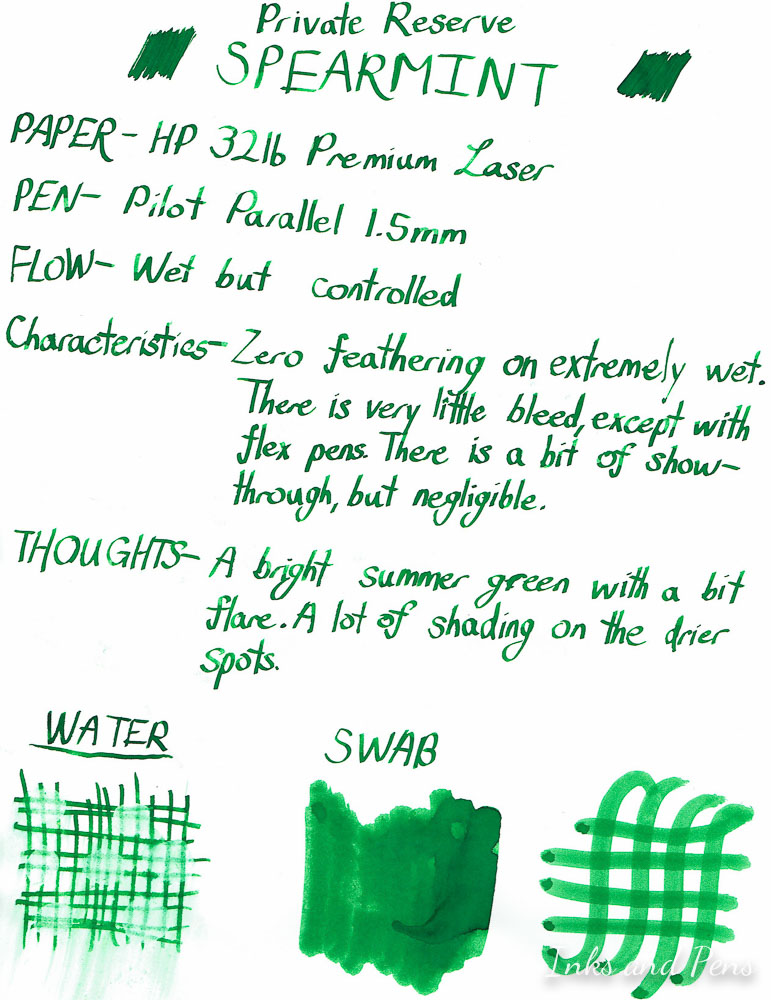 Private Reserve
SPEARMINT
PAPER- HP 32lb Premium Laser
PEN- Pilot Parallel 1.5mm
FLOW- Wet but controlled
Characteristics- Zero feathering on extremely wet.
There is very little bleed, except with
flex pens. There is a bit of show-
through, but negligible.
THOUGHTS- A bright summer green with a bit
flare. A lot of shading on the drier
spots.
WATER
SWAB
Inks and Pens